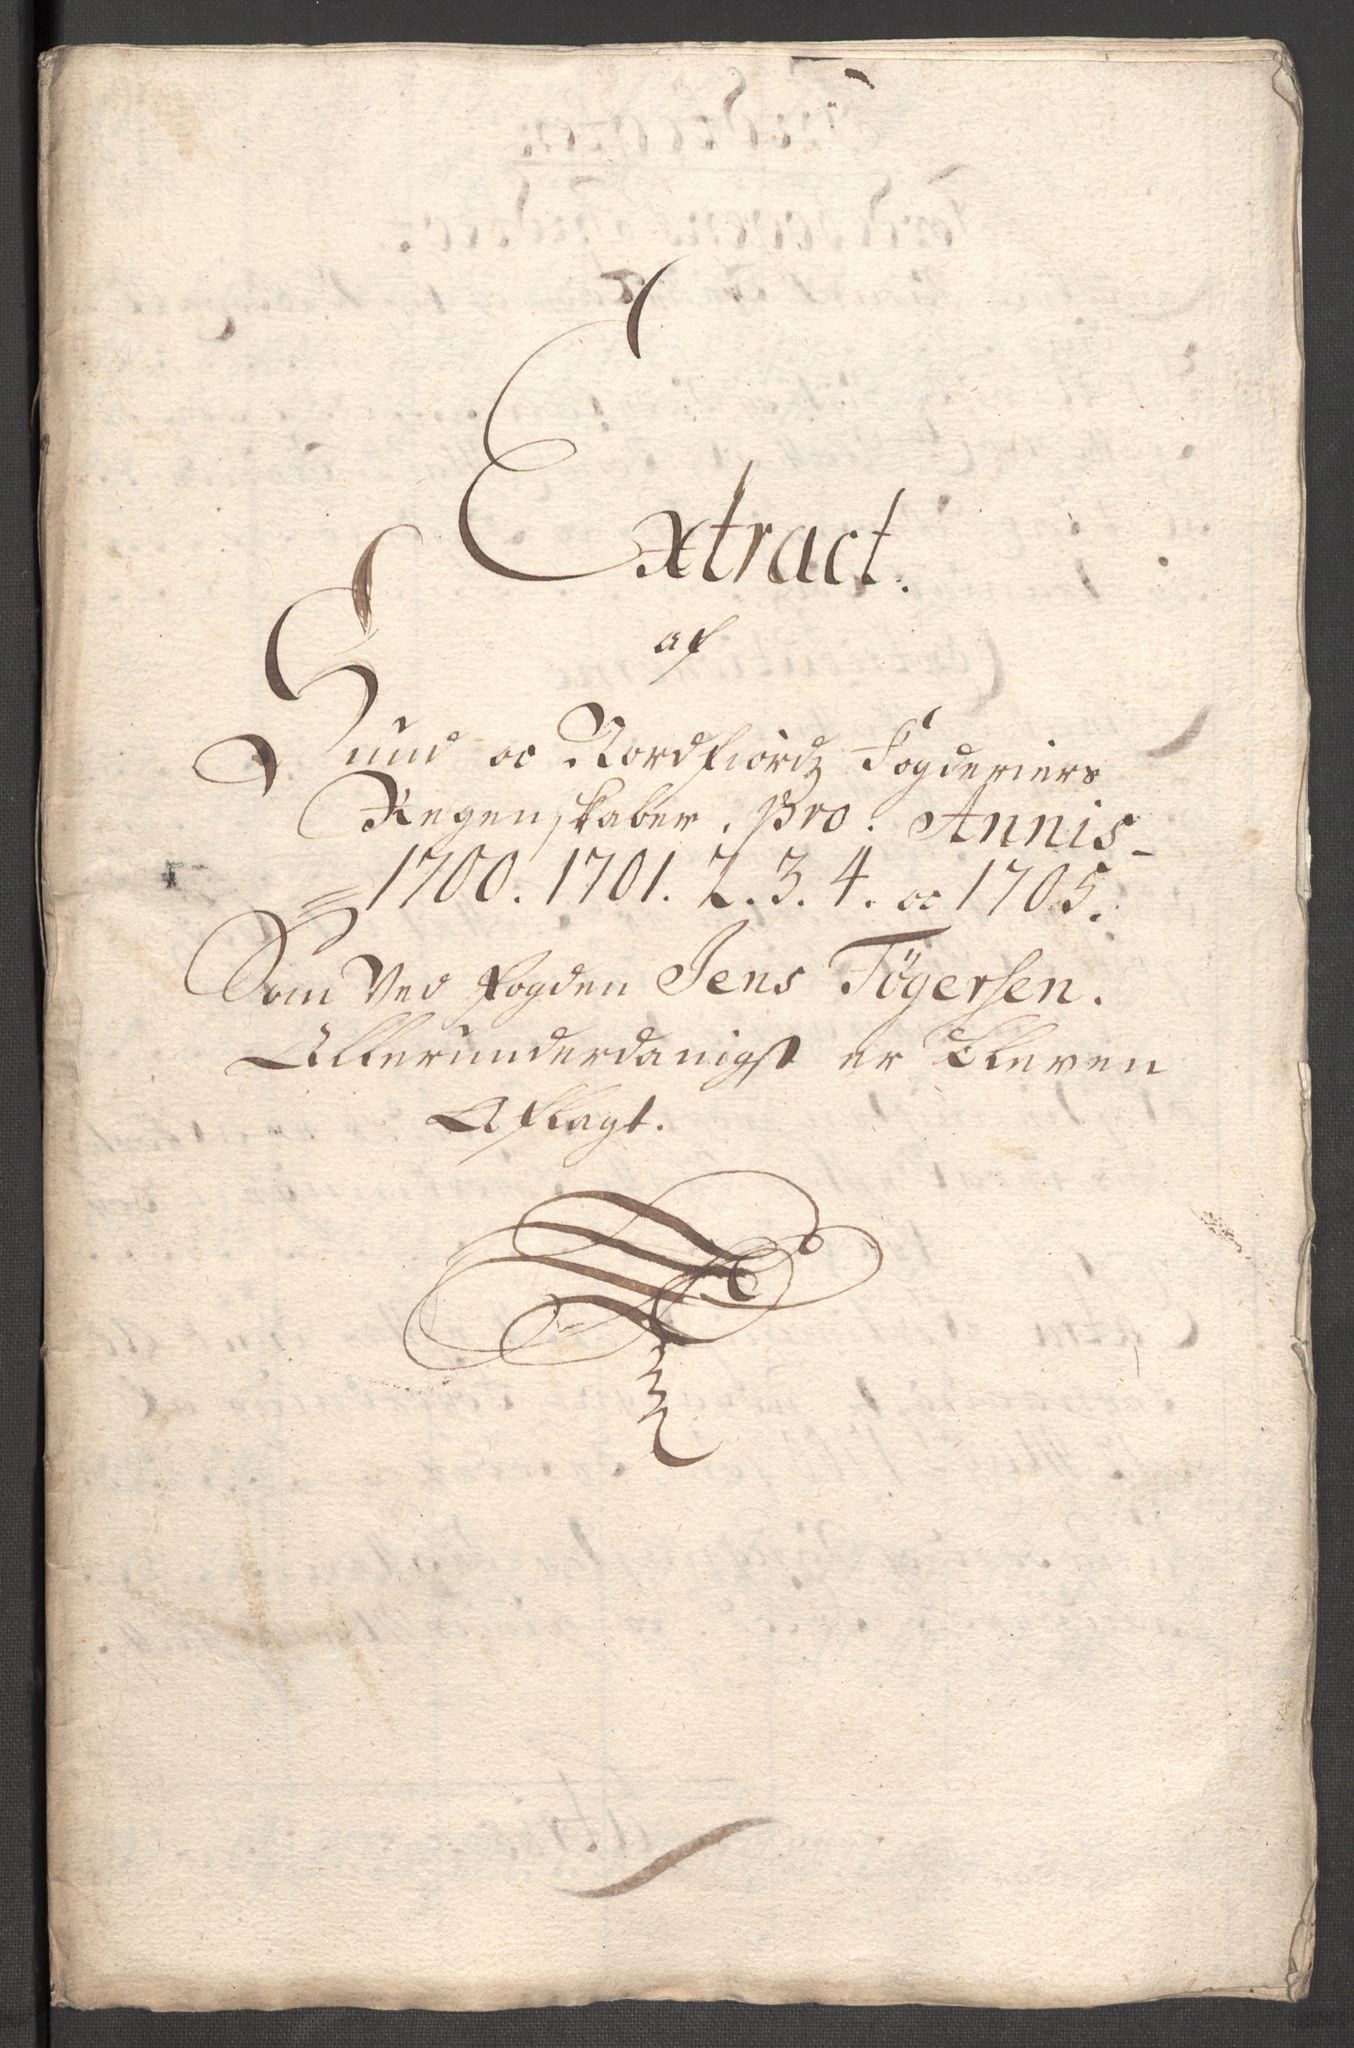 Extract.
af
Sund oc Nordfiordz Fogderiers
Regenskaber, pro. Annis
1700. 1701. 2. 3. 4. oc 1705.
Som Ved fogden Jens Fögersen.
Allerunderdanigst er bleven
Aflagt.